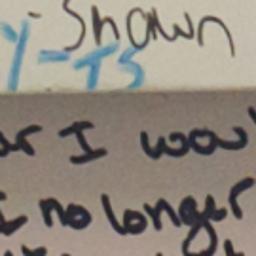 -Shawn
y-TS
ar I wou
I no longer